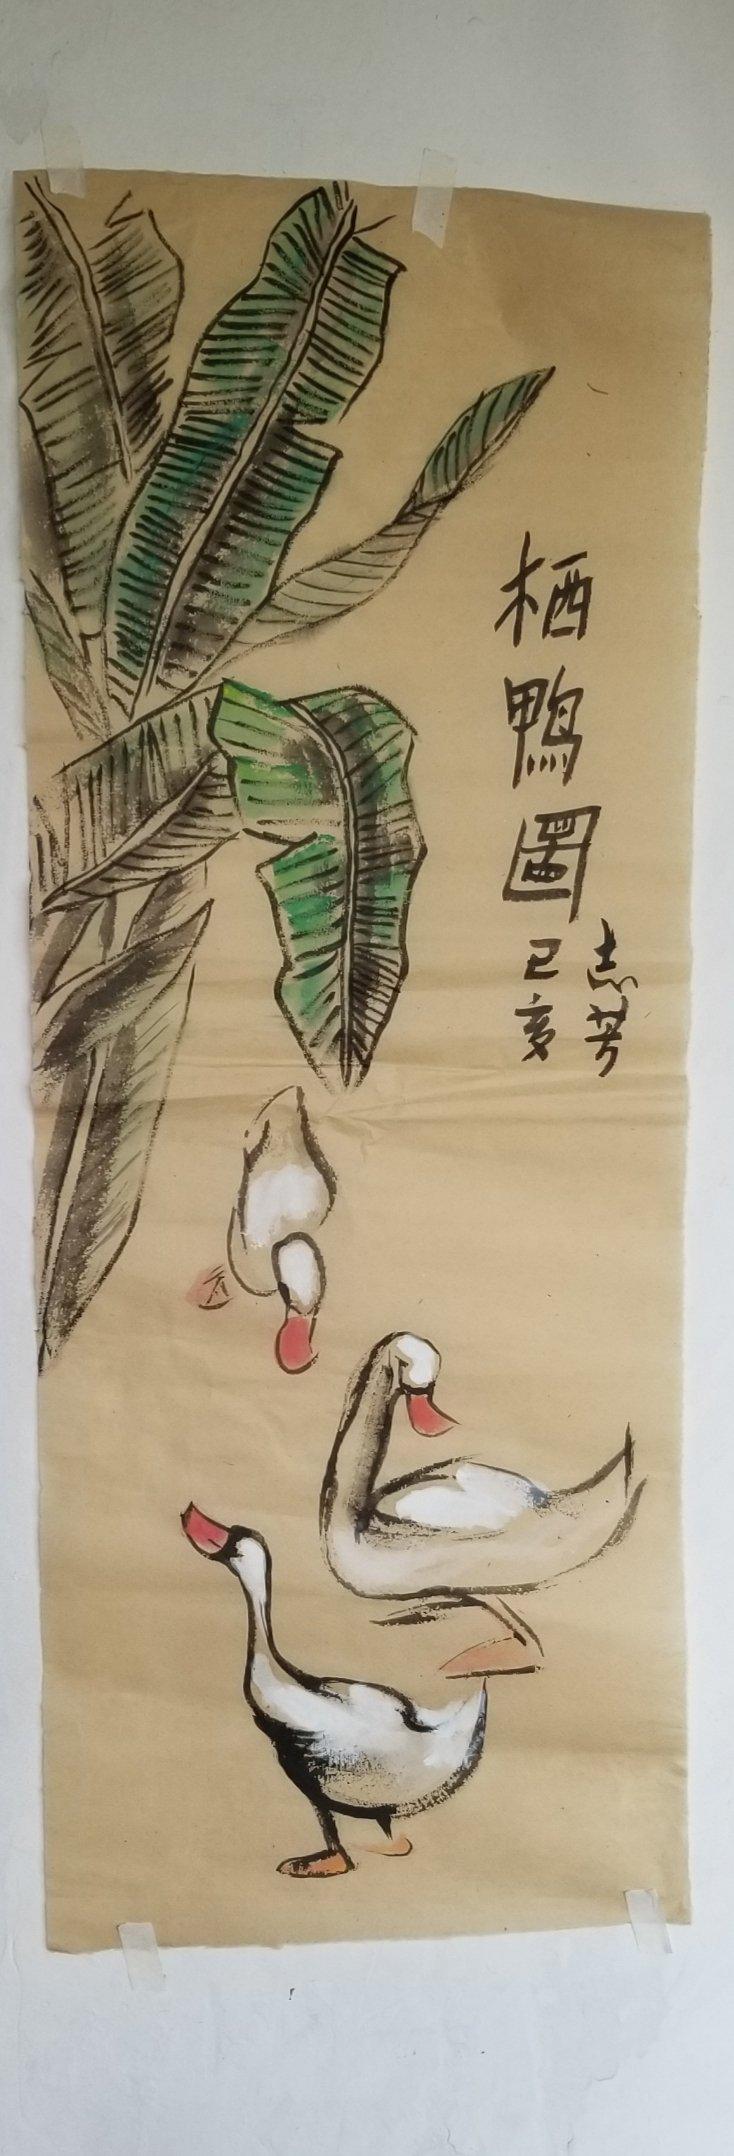 栖鴨圖
己亥
志芳